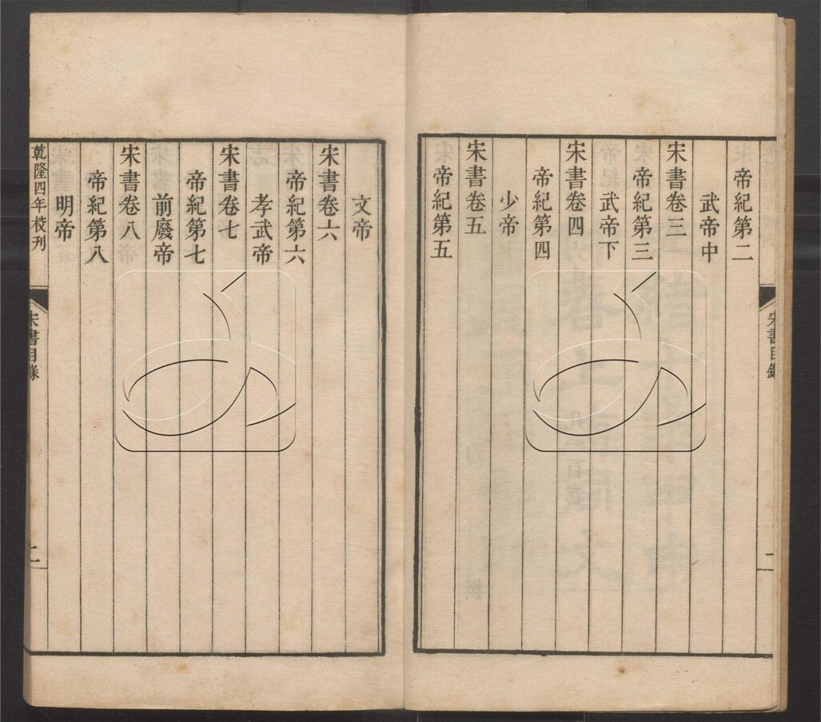 帝紀第二
武帝中
宋書卷三
帝紀第三
武帝下
宋書卷四
帝紀第四
少帝
宋書卷五
帝紀第五
宋書目錄
二
文帝
宋書卷六
帝紀第六
孝武帝
宋書卷七
帝紀第七
前廢帝
宋書卷八
帝紀第八
明帝
乾隆四年校刊
宋書目錄
二